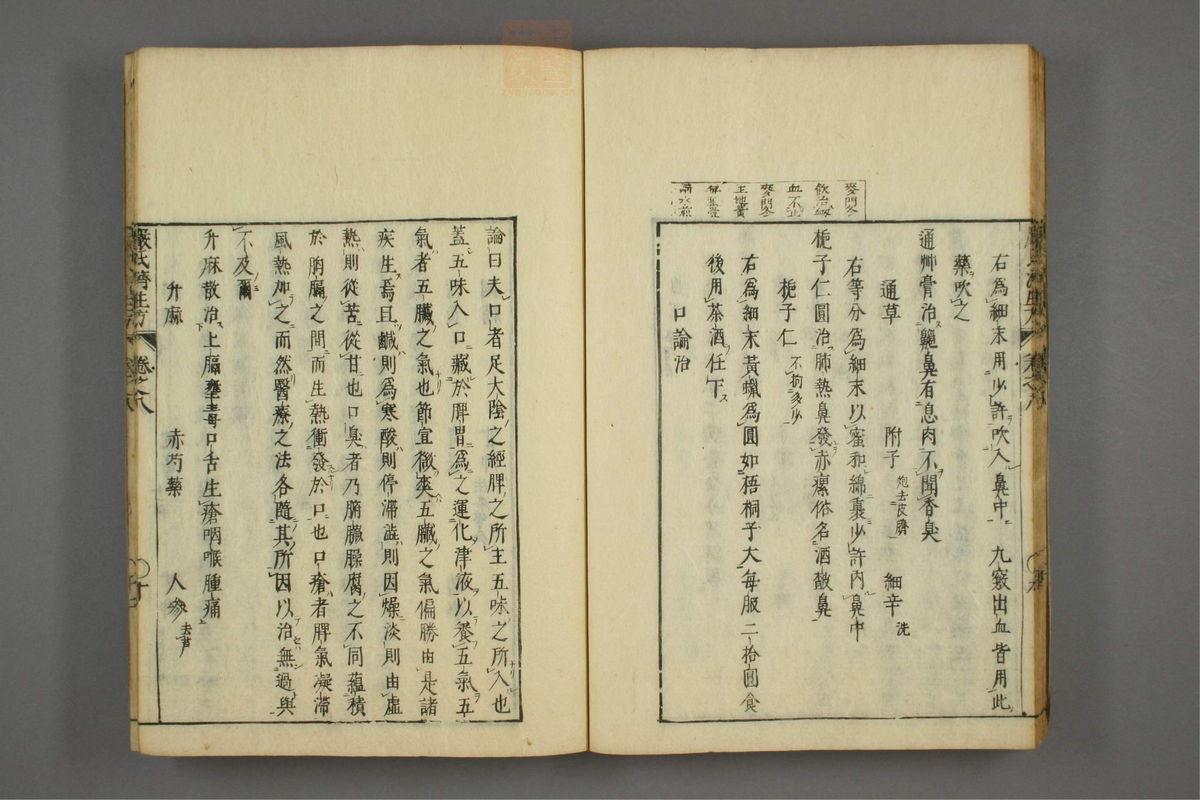 麥門冬
飲治衂
血不止
麥門冬
生地黃
右爲細末用少許吹入鼻中 九竅出血皆用此
藥吹之
通艸膏治齆鼻有息肉不聞香臭
通草 附子炮去皮臍 細辛洗
右等分爲細末以蜜和綿裹少許內鼻中
梔子仁圓治肺熱鼻發赤瘰俗名酒皶鼻
梔子仁不拘多少
右爲細末黃蠟爲圓如梧桐子大每服二拾圓食
後用茶酒任下
口論治
論曰夫口者足大陰之經脾之所主五味之所入也
蓋五味入口藏於脾胃爲之運化津液以養五氣五
氣者五臟之氣也節宜微爽五臟之氣偏勝由是諸
疾生焉且鹹則爲寒酸則停滯澁則因燥淡則由虛
熱則從苦從甘也口臭者乃腑臟臊腐之不同蘊積
於胸膈之間而生熱衝發於口也口瘡者脾氣凝滯
風熱加之而然醫療之法各隨其所因以治無過與
不及爾
升麻散治上膈壅毒口舌生瘡咽喉腫痛
升麻 赤芍藥 人參去芦
嚴氏濟生方 卷之八